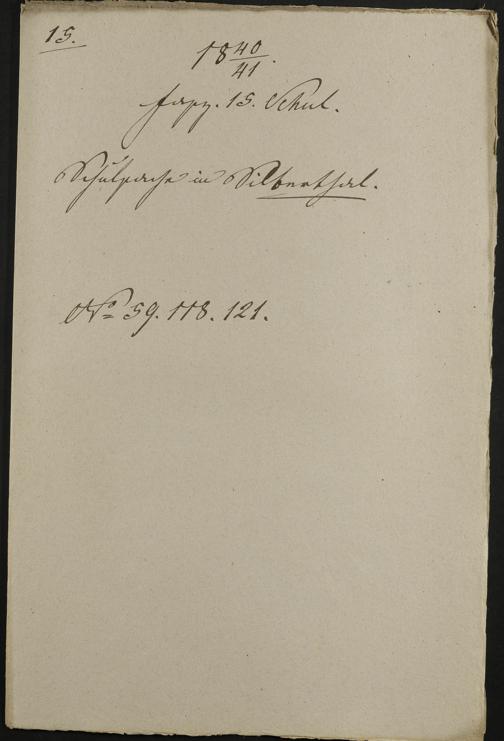 15.
18 40/41.
Fasz. 15. Schul.
Schulsache in Silberthal.
No 59. 118. 121.